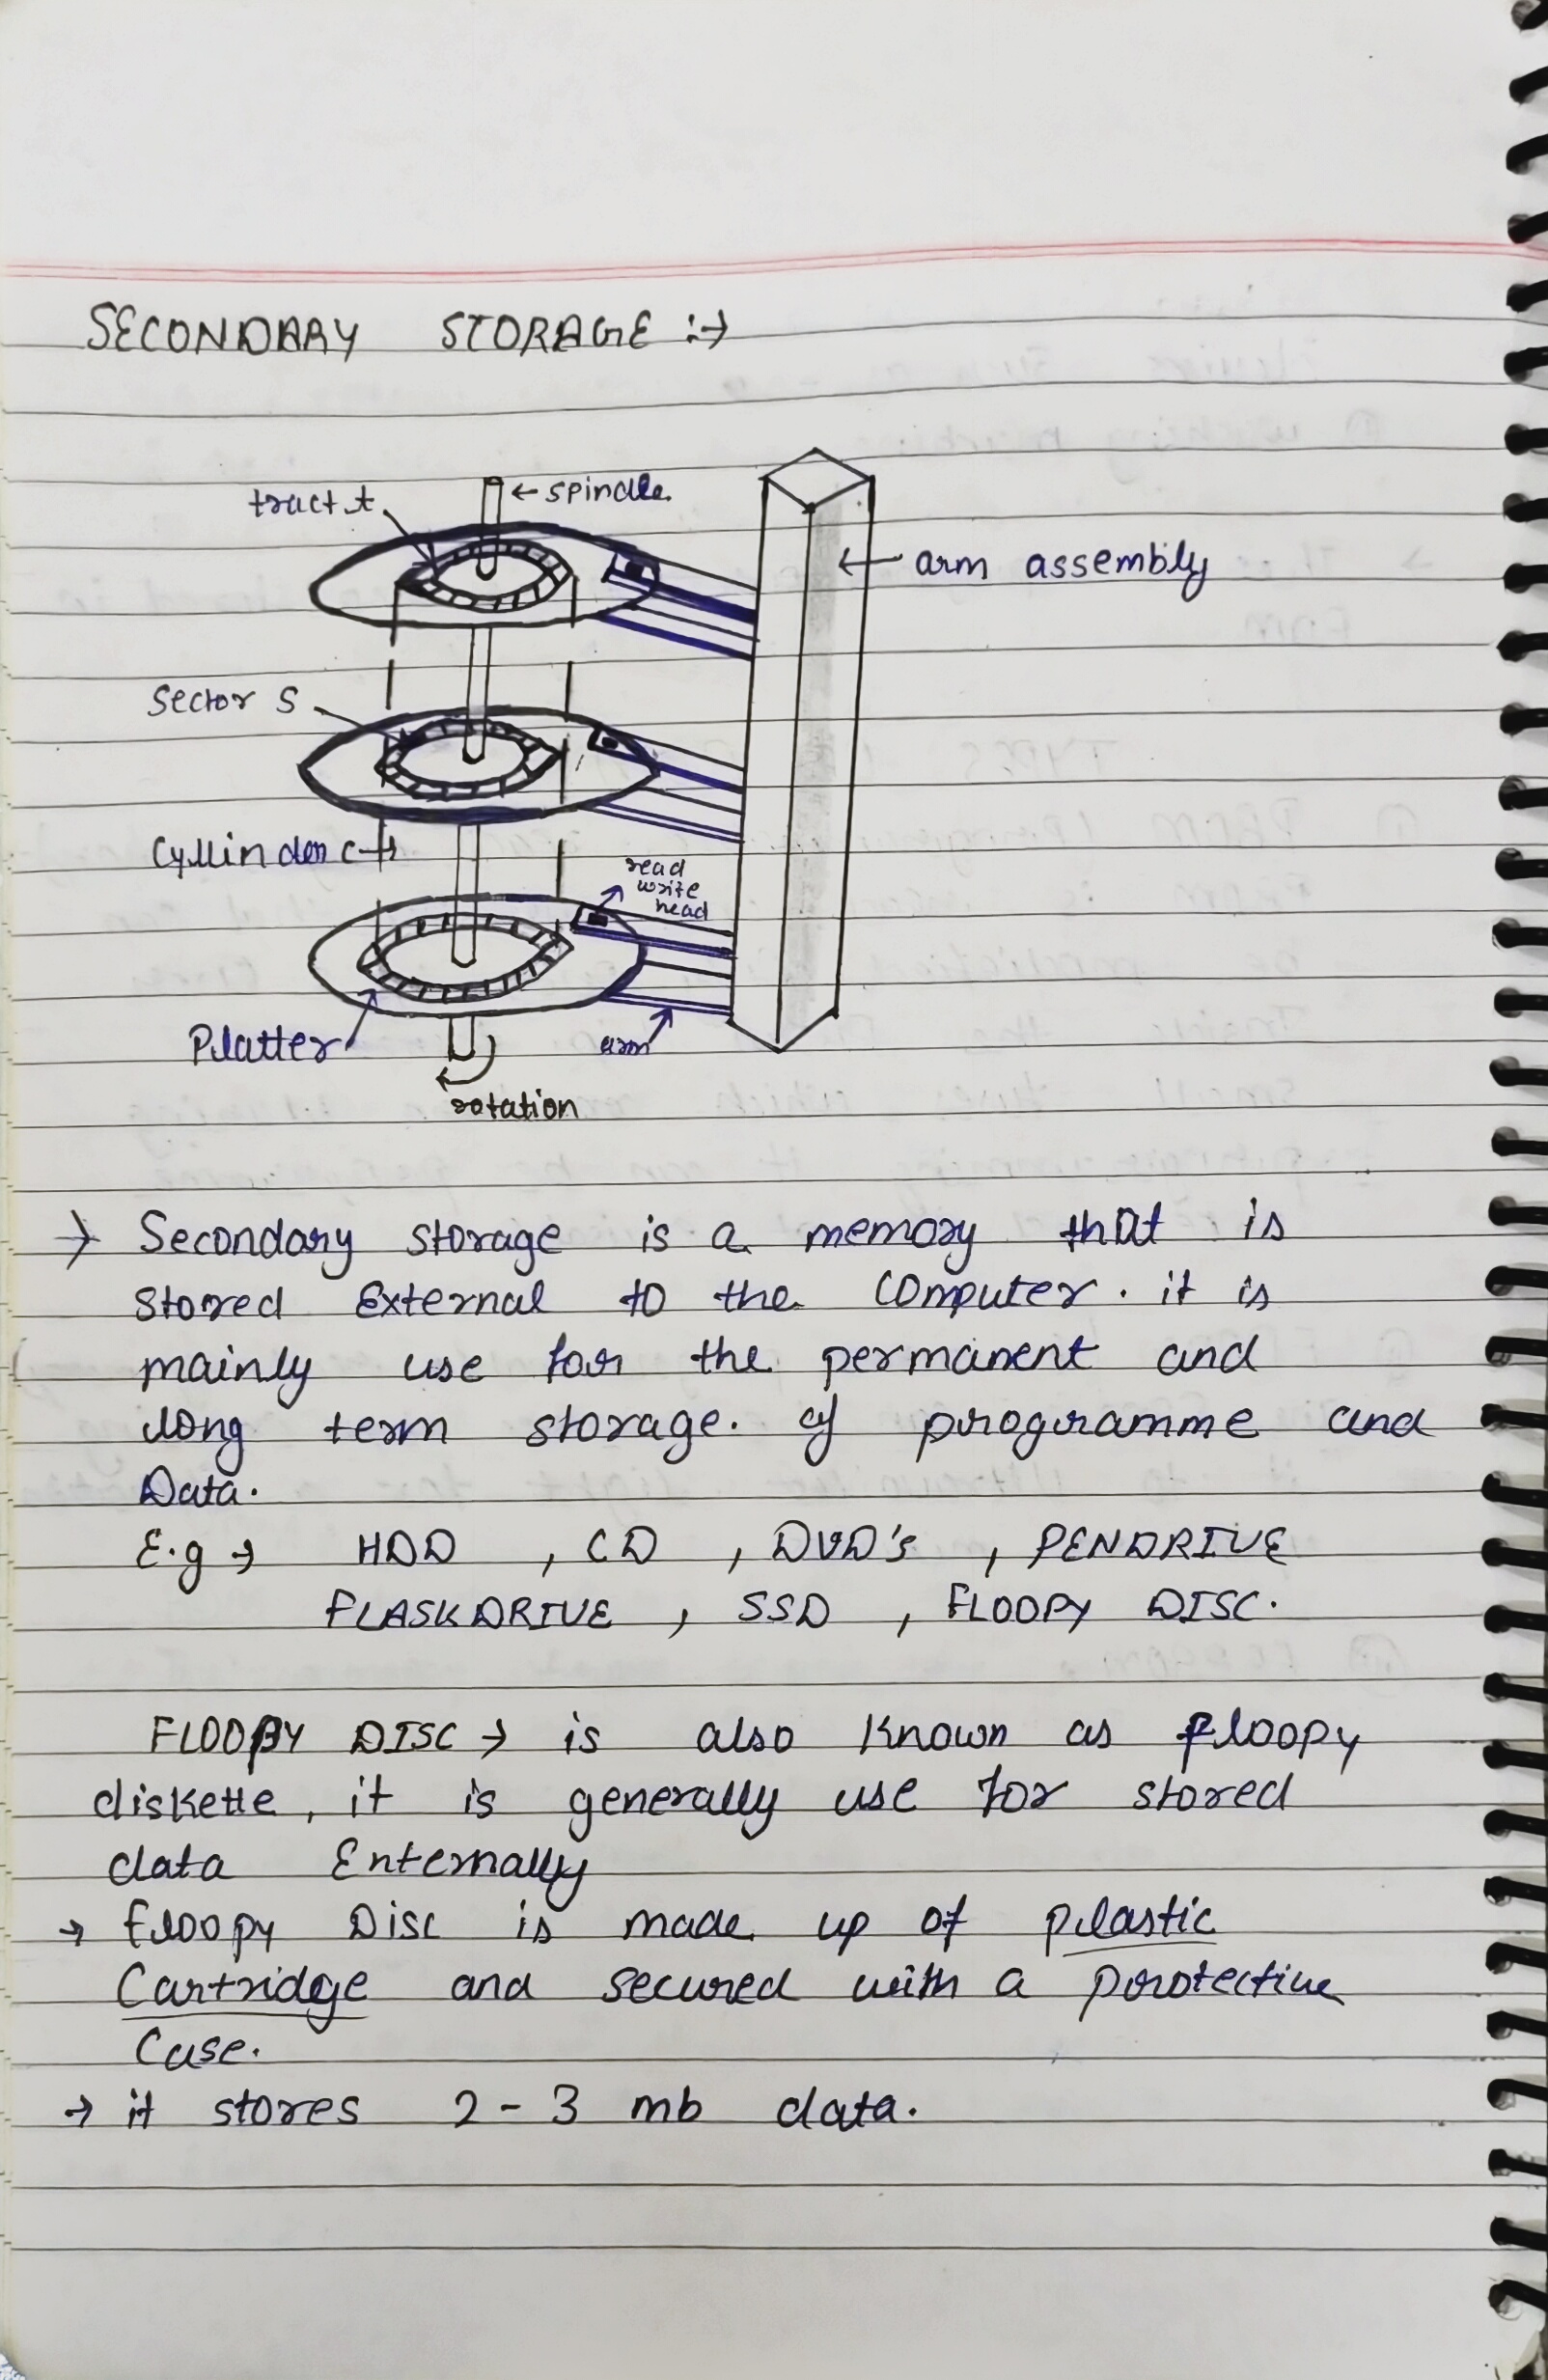 SECONDARY STORAGE :→
tract t
← spindle
← arm assembly
Sector S
Cyllinder c→
read
write
head
Platter
arm
rotation
→ Secondary storage is a memory that is
stored External to the Computer. it is
mainly use for the permanent and
long term storage. of programme and
Data.
E.g → HDD , CD , DVD's , PENDRIVE
FLASKDRIVE , SSD , FLOOPY DISC.
FLOOPY DISC → is also Known as floopy
diskette, it is generally use for stored
data Enternally
→ floopy Disc is made up of plastic
Cartridge and secured with a protective
Case.
→ it stores 2-3 mb data.